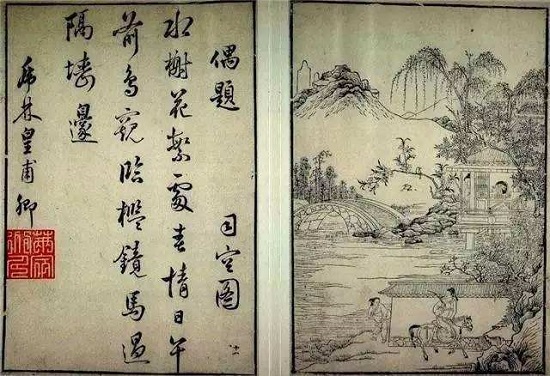 偶題 司空圖
水榭花繁處春情日午
前鳥窺臨檻鏡馬過
隔墻邊
虎林皇甫卿